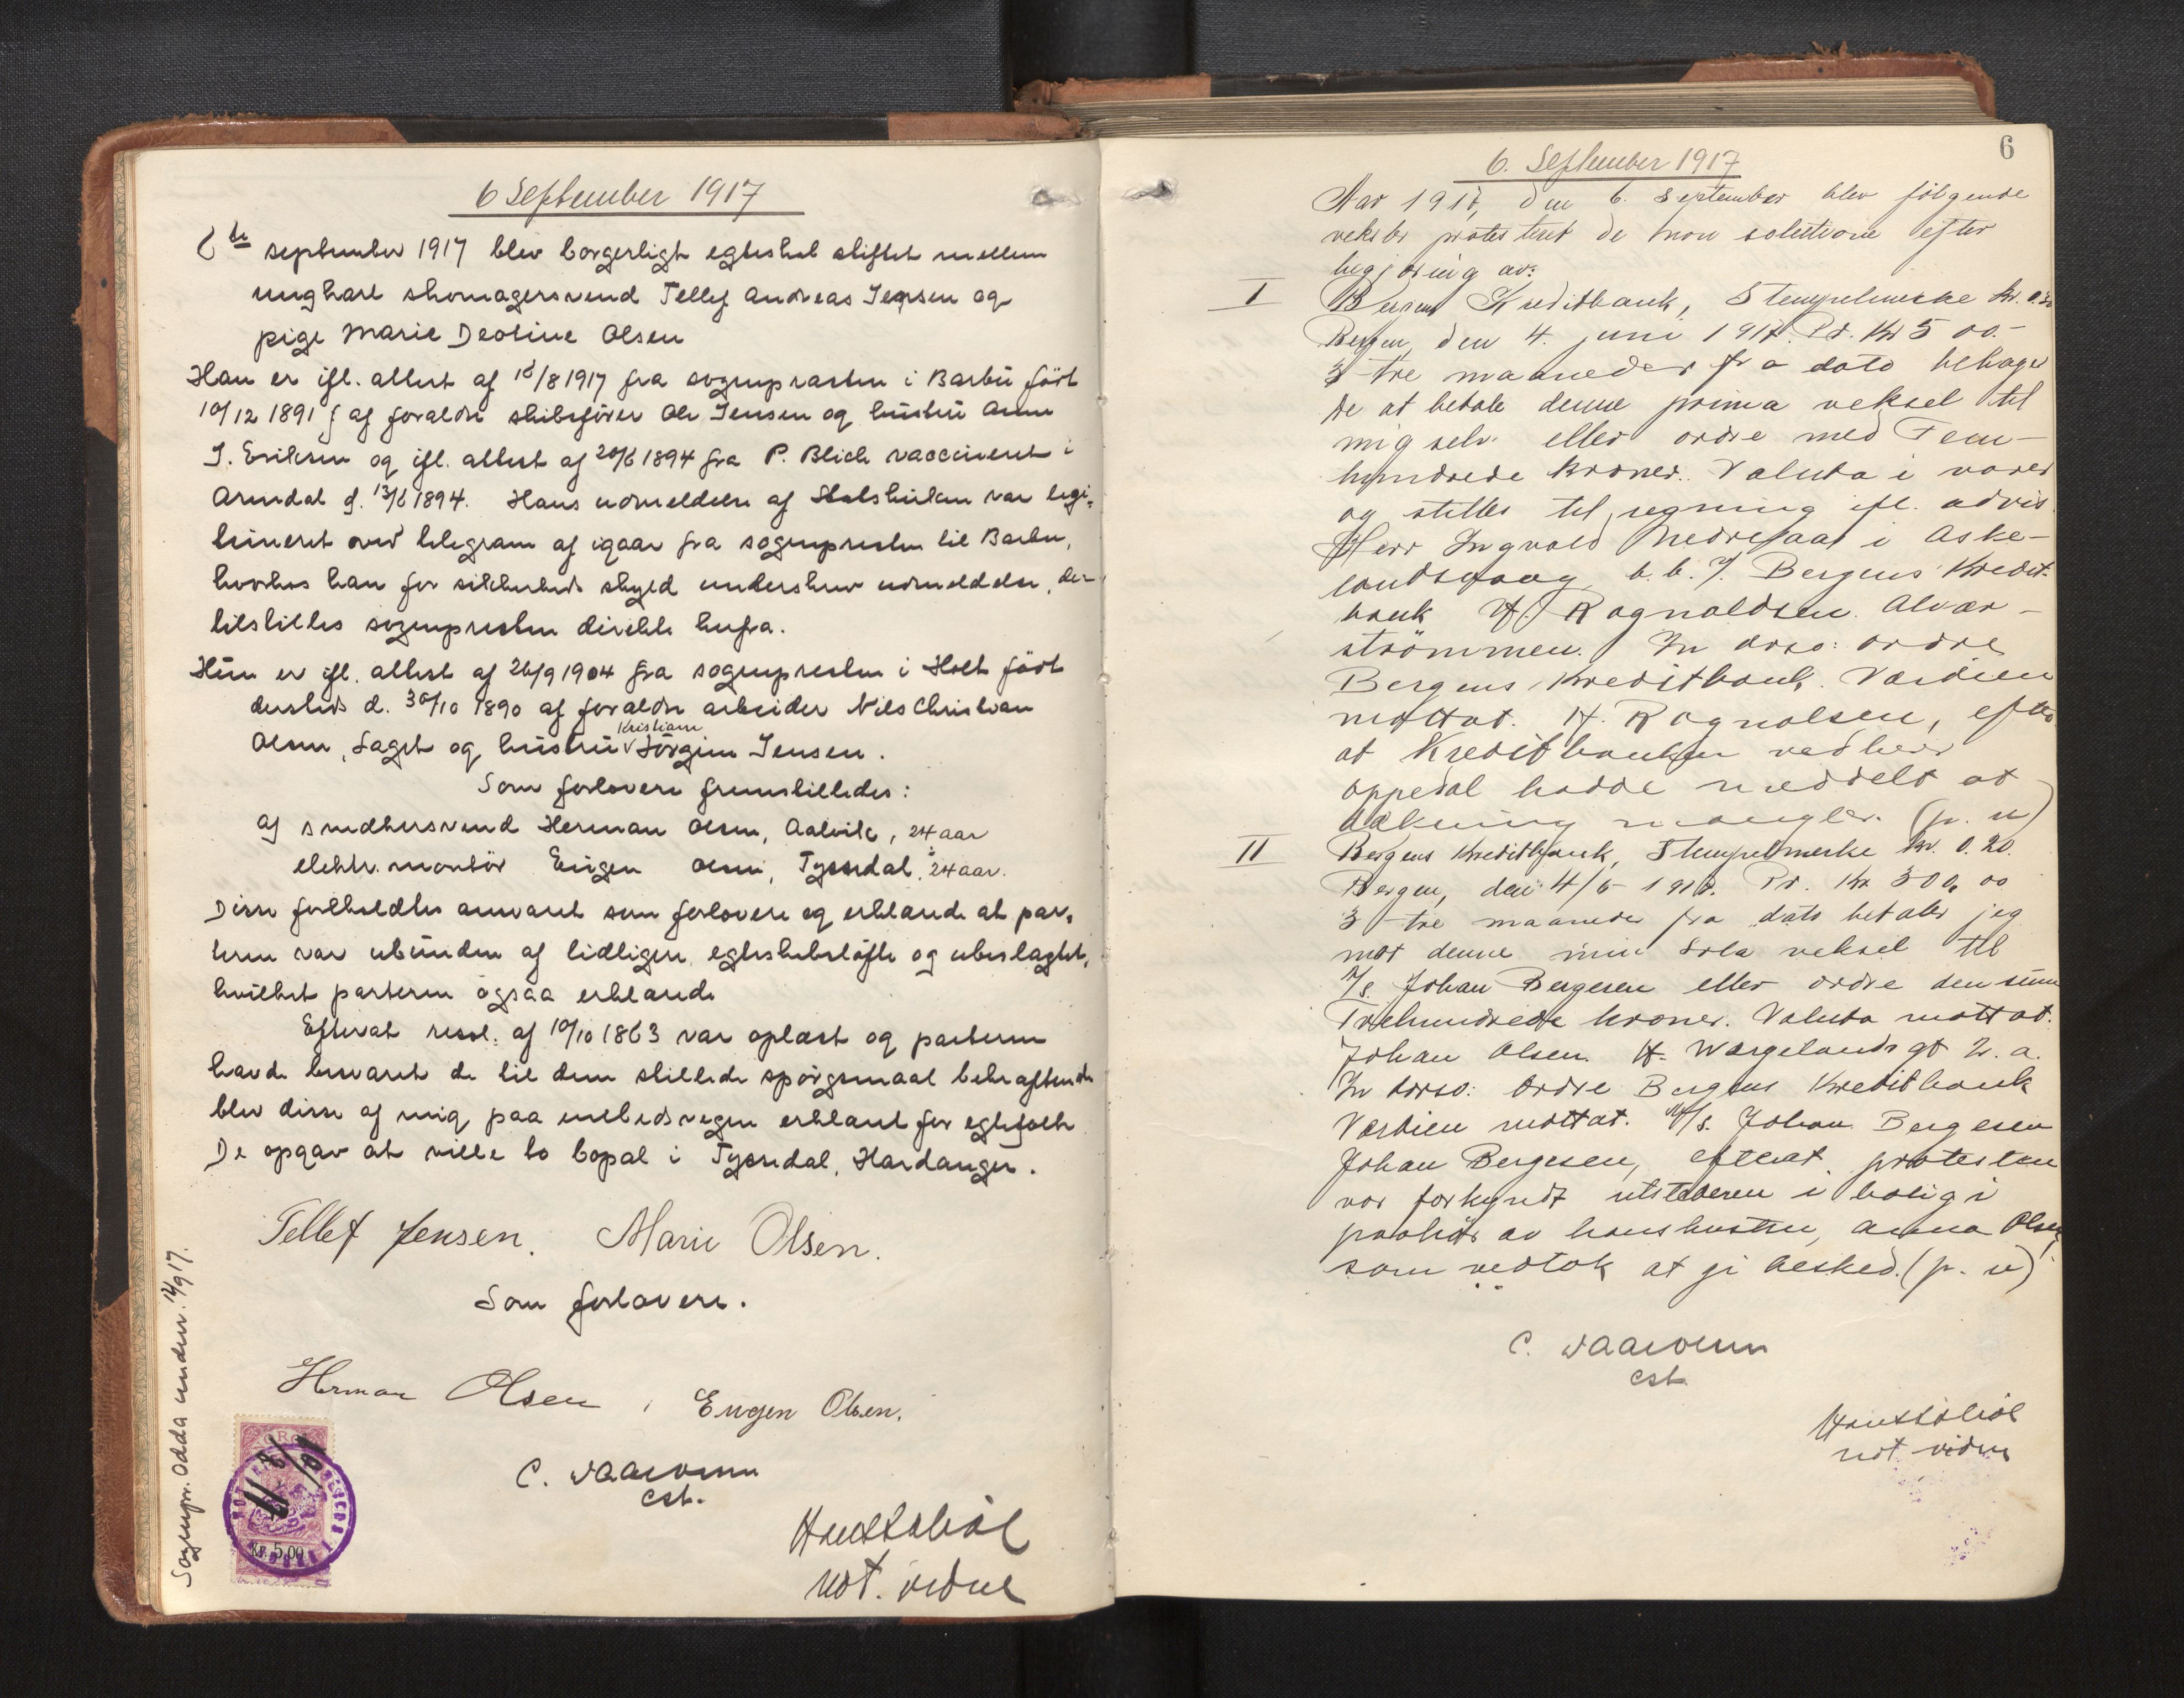 6 September 1917
6te september 1917 blev borgerligt egteskab stiftet mellem
ungkarl skomagersvend Tellef Andreas Jensen og
pige Marie Deoline Olsen
Han er ifl. attest af 18/8 1917 fra sogneprasten i Barbu født
10/12 1891 af foraldre skibsfører Ole Jensen og hustru Anne
J. Eriksen og ifl. attest af 20/6 1894 fra P. Blich vaccineret i
Arendal d. 13/6 1894. Hans udmeldelse af Statskirken var legi-
timeret ved telegram af igaar fra sognepresten til Barbu,
hvorhos han for sikkerheds skyld underskrev udmeldelse, der
tilstilles sognepresten direkte herfra.
Hun er ifl. attest af 26/9 1904 fra sognepresten i Holt født
dersteds d. 30/10 1890 af foraldre arbeider Nils Christian
Olsen, Saget og hustru Kristiane Jørgine Jensen.
Som forlovere fremstilledes:
af smedhersvend Herman Olsen, Aalvik, 24 aar
elektr. montør Eugen Olsen, Tyssedal, 24 aar.
Disse forholdtes ansvaret som forlovere og erklærede at par-
terne var ubunden af tidligere egteskabsløfte og ubeslagtet,
hvilket parterne ogsaa erklarede
Efterat resol. af 10/10 1863 var oplæst og parterne
havde besvaret de til dem stillede spørgsmaal bekraftende
blev disse af mig paa embedsvegne erklaret for egtefolk
De opgav at ville bo bopal i Tyssedal, Hardanger.
Tellef Jensen. Marie Olsen.
Som forlovere.
Herman Olsen, Eugen Olsen.
C. Waarum
cst.
not. vidne
Sognepr. Odda underr. 14/9 17.
NORGE
Kr. 5,00
6
6. September 1917
Aar 1917, den 6. september blev følgende
veksler protesteret de non solutione efter
begjæring av:
I Bergens Kreditbank, Stempelmerke kr. 0.30
Bergen, den 4. juni 1917. Pr. Kr 500.-
3 - tre maaneder fra dato behager
de at betale denne prima veksel til
mig selv eller ordre med Fem-
hundrede kroner. Valuta i varer
og stilles til regning ifl. advis
Herr Ingvald Nedrefaas i Aske-
landsvaag b.b. f. Bergens Kredit-
bank H. Ragnaldsen. Alvær-
strømmen. In dorso: ordre
Bergens Kreditbank. Værdien
mottat. H. Ragnalsen, efter
at Kreditbanken ved herr
Oppedal hadde meddelt at
dækning mangler. (p. u)
II Bergens Kreditbank, Stempelmerke kr. 0.20.
Bergen, den 4/6 1917. Pr. Kr 300,00
3 - tre maaneder fra dato betaler jeg
mot denne min Sola veksel til
A/s. Johan Bergesen eller ordre den sum
Trehundrede kroner. Valuta mottat.
Johan Olsen. H. Wergelands gt 2. a.
In dorso: Ordre Bergens Kreditbank
Værdien mottat. A/s. Johan Bergesen
Johan Bergesen, efterat protesten
var forkyndt utstederen i bolig i
paahør av hans hustru, Anna Olsen,
som vedtok at gi besked. (p. u)
C. Waarum
cst.
not. vidne